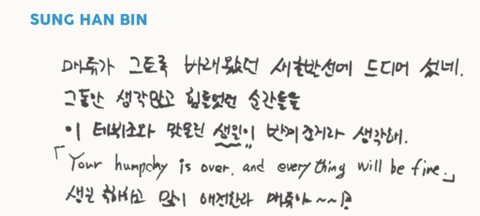 SUNG HAN BIN
매튜가 그토록 바래왔던 출발선에 드디어 섰네.
그동안 생각많고 힘들었던 순간들을
이 데뷔조와 맞물린 생일이 반겨준거라 생각해.
「Your humpday is over, and everything will be fine.」
생일 축하하고 많이 애정한다 매튜야~~!?